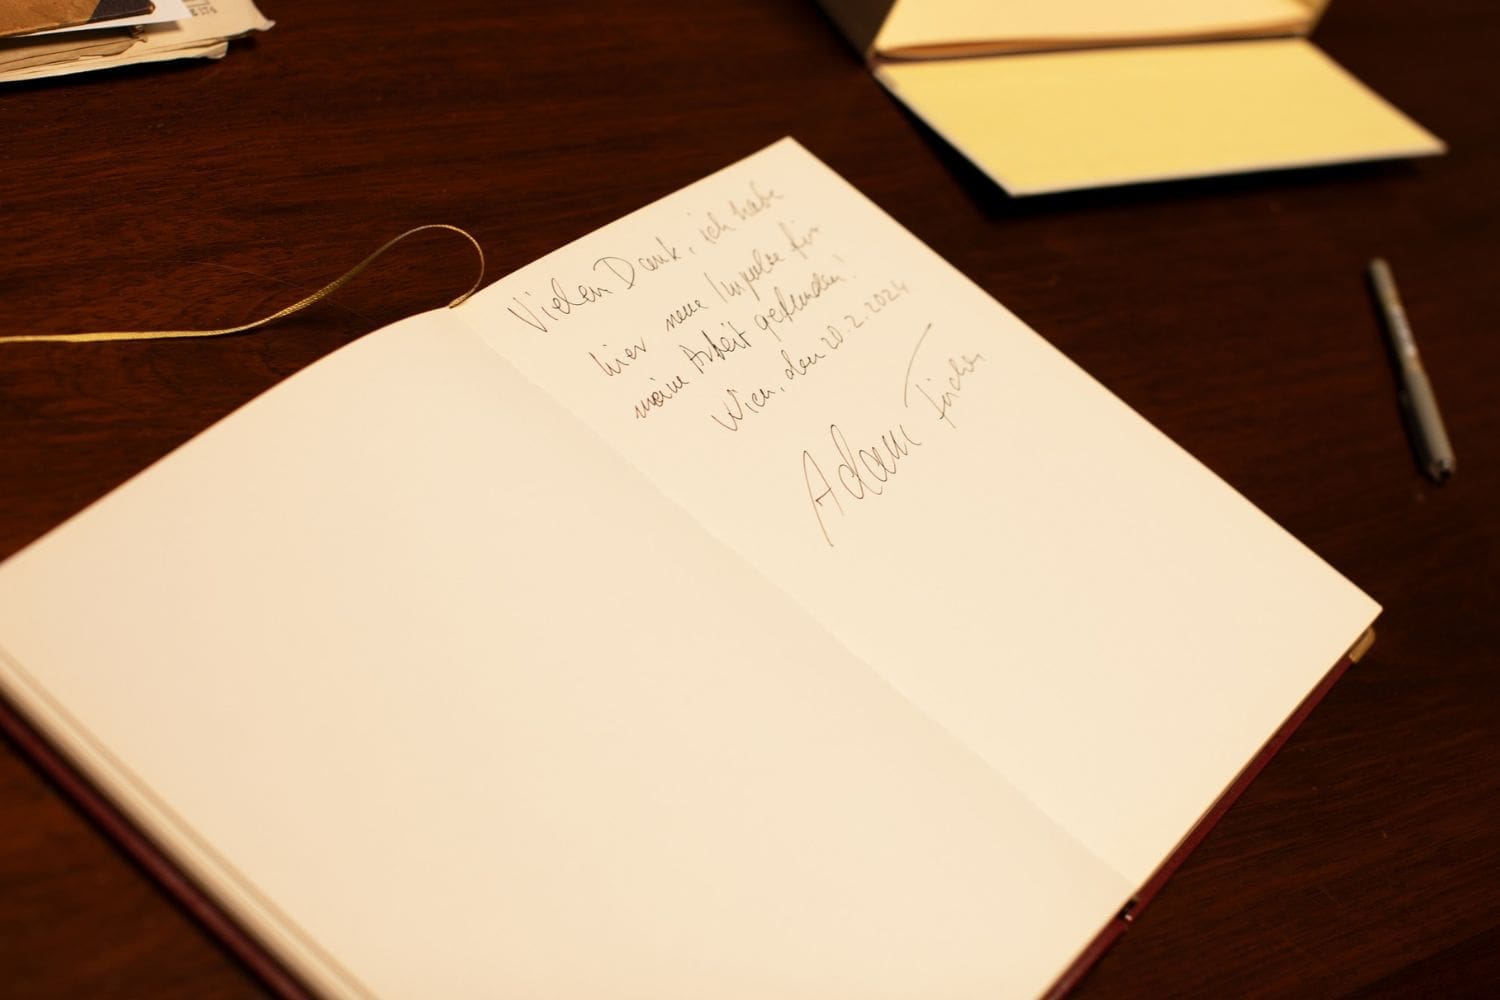 Vielen Dank, ich habe
hier neue Impulse für
meine Arbeit gefunden!
Wien, den 20.2.2024
Adam